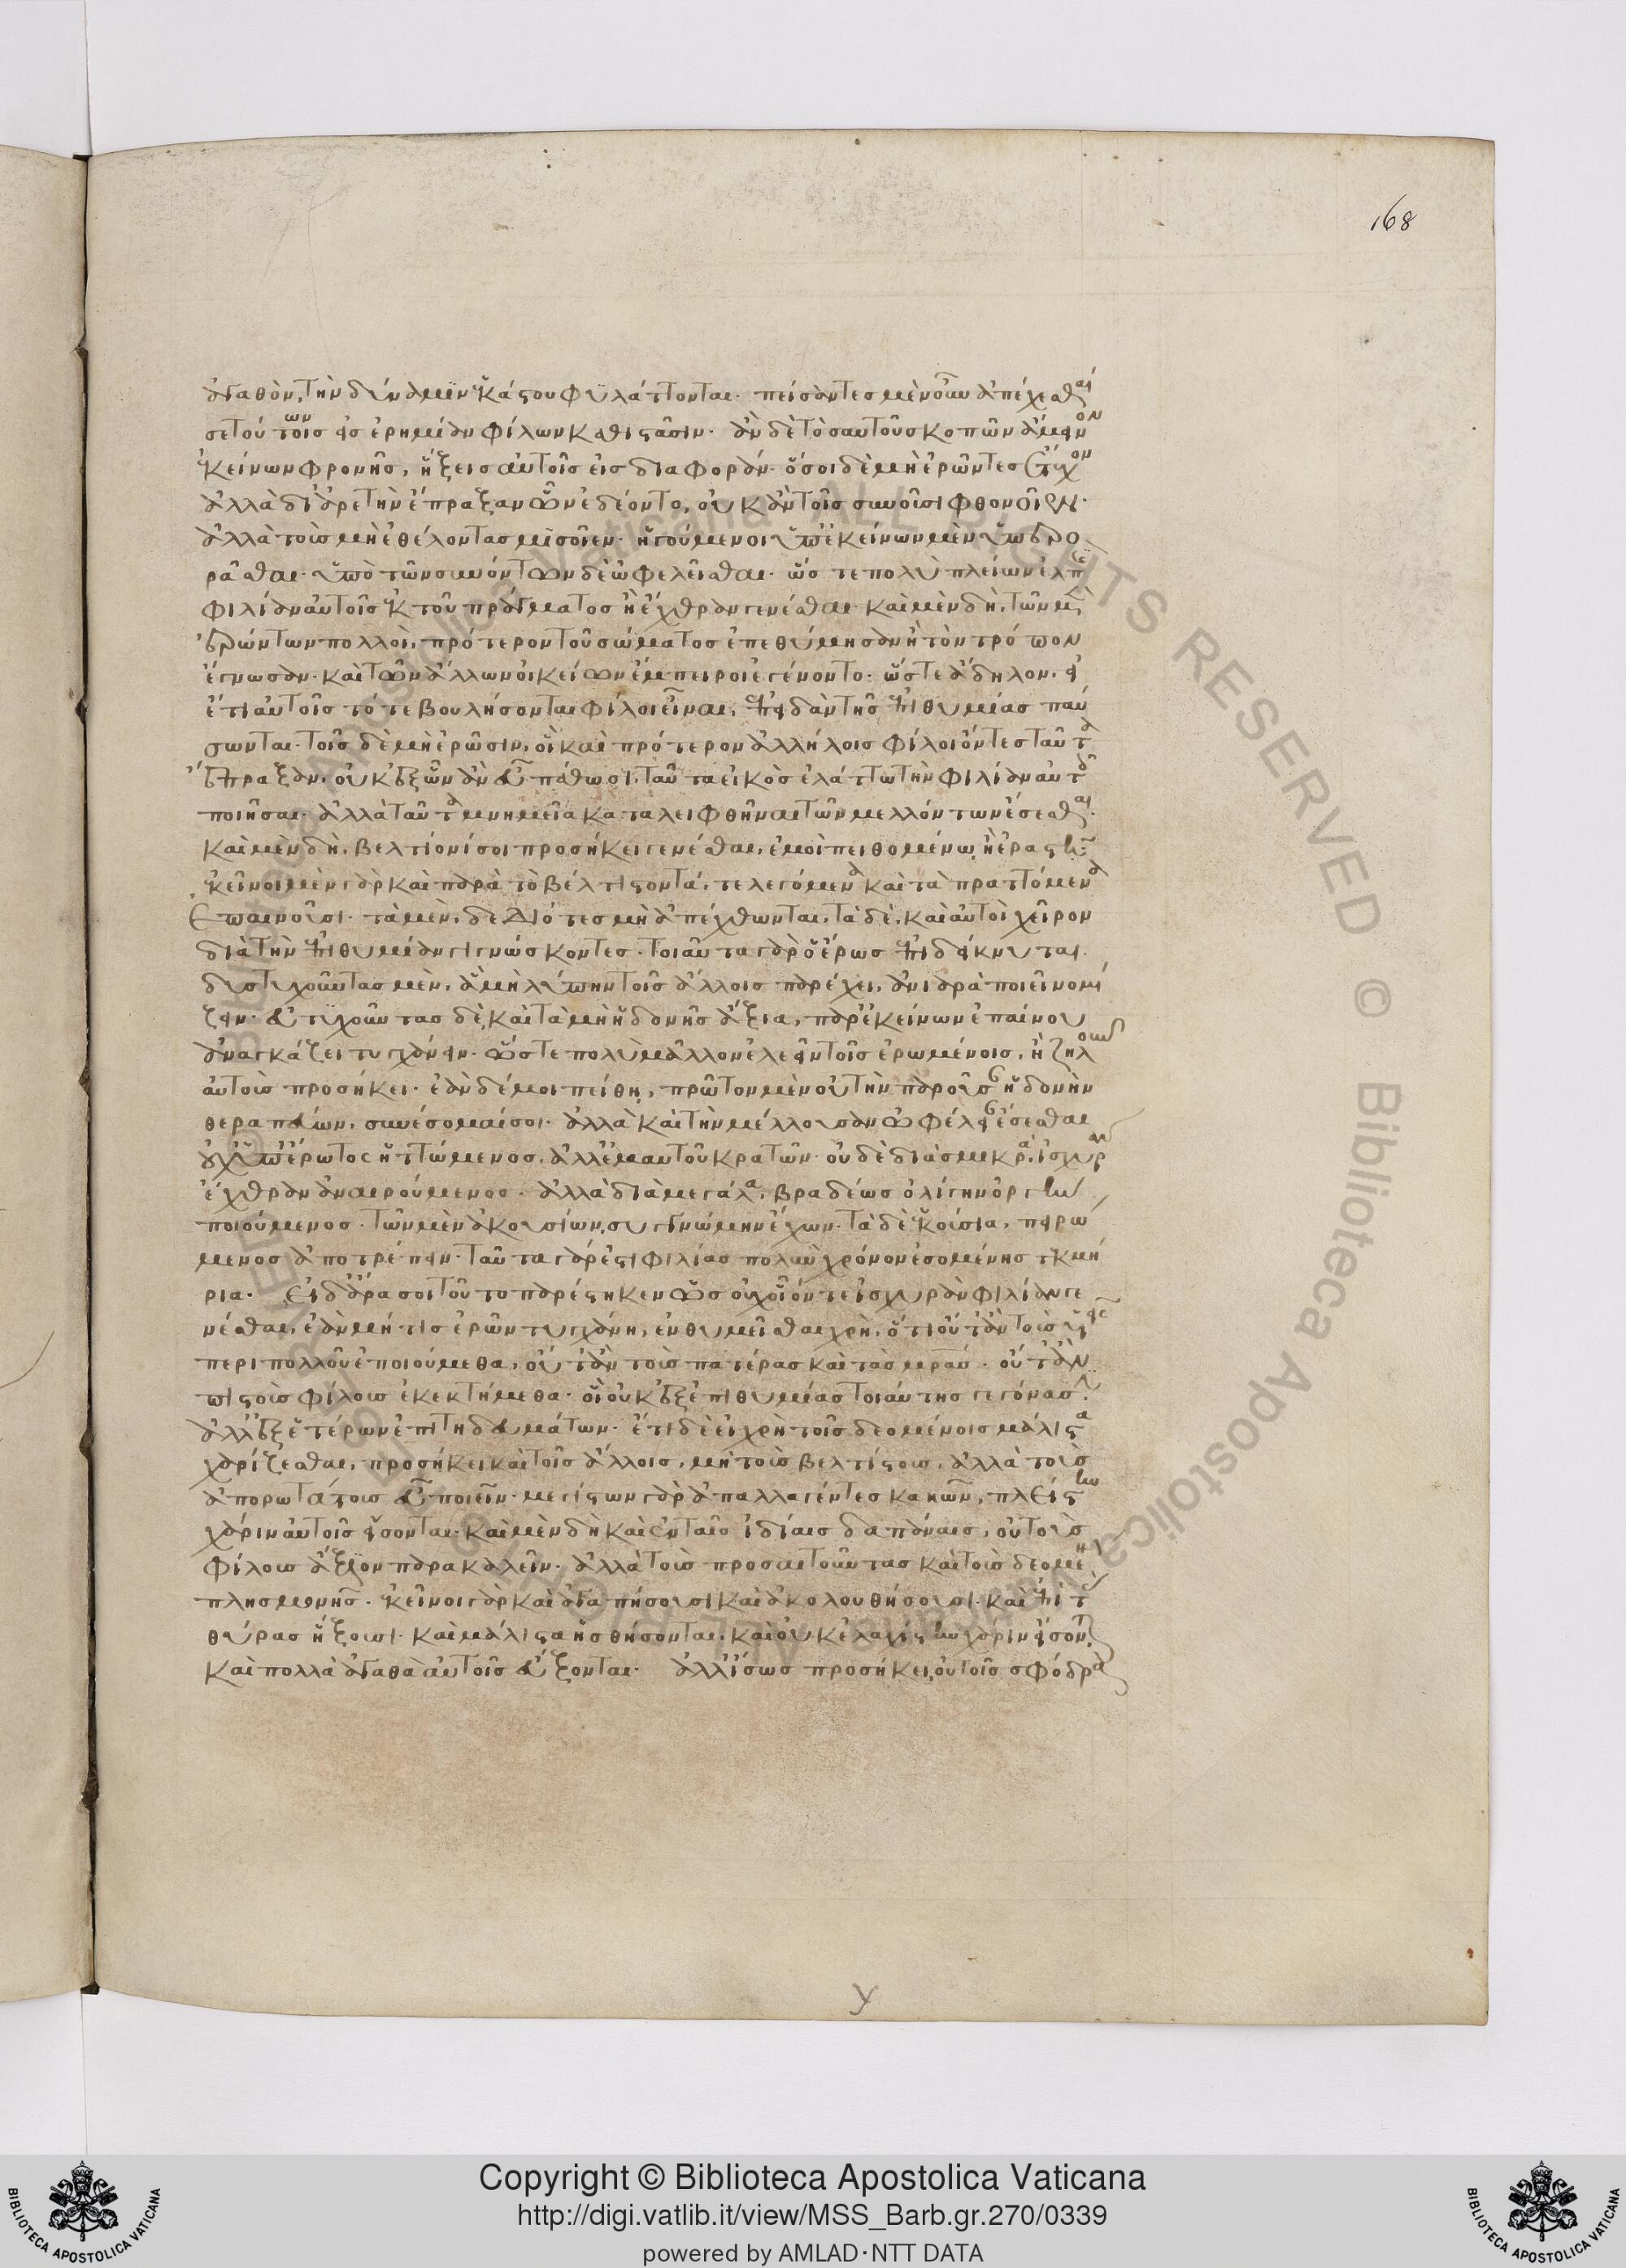 168
ἀγαθὸν, τὴν δύναμιν ἑκάστου φυλάττονται· πείσαντες μὲν οὖν ἀπέχεσθαί
σε τούτων τοῖς εἰς ἐρημίαν φίλων καθιστᾶσιν· ἐὰν δὲ τὸ σαυτοῦ σκοπῶν ἄμεινον
ἐκείνων φρονῇς, ἥξεις αὐτοῖς εἰς διαφοράν· ὅσοι δὲ μὴ ἐρῶντες ἔτυχον
ἀλλὰ δι' ἀρετὴν ἔπραξαν ὧν ἐδέοντο, οὐκ ἂν τοῖς συνοῦσι φθονοῖεν·
ἀλλὰ τοὺς μὴ ἐθέλοντας μισοῖεν· ἡγούμενοι ὑπ' ἐκείνων μὲν ὑπερο
ρᾶσθαι· ὑπὸ τῶν συνόντων δὲ ὠφελεῖσθαι· ὥστε πολὺ πλείων ἐλπὶς
φιλίαν αὐτοῖς ἐκ τοῦ πράγματος ἢ ἔχθραν γενέσθαι· καὶ μὲν δὴ, τῶν μὲν
ἐρώντων πολλοὶ, πρότερον τοῦ σώματος ἐπεθύμησαν ἢ τὸν τρόπον
ἔγνωσαν· καὶ τῶν ἄλλων οἰκείων ἔμπειροι ἐγένοντο· ὥστε ἄδηλον, εἰ
ἔτι αὐτοῖς τότε βουλήσονται φίλοι εἶναι, ἐπειδὰν τῆς ἐπιθυμίας παύ
σωνται· τοῖς δὲ μὴ ἐρῶσιν, οἳ καὶ πρότερον ἀλλήλοις φίλοι ὄντες ταῦτα
ἔπραξαν, οὐκ ἐξ ὧν ἂν εὖ πάθωσι, ταῦτα εἰκὸς ἐλάττω τὴν φιλίαν αὐτοῖς
ποιῆσαι· ἀλλὰ ταῦτα μνημεῖα καταλειφθῆναι τῶν μελλόντων ἔσεσθαι·
καὶ μὲν δὴ, βελτίονί σοι προσήκει γενέσθαι, ἐμοὶ πειθομένῳ, ἢ ἐραστῇ·
ἐκεῖνοι μὲν γὰρ καὶ παρὰ τὸ βέλτιστον τά, τε λεγόμενα καὶ τὰ πραττόμενα
ἐπαινοῦσι· τὰ μὲν, δεδιότες μὴ ἀπέχθωνται, τὰ δὲ, καὶ αὐτοὶ χεῖρον
διὰ τὴν ἐπιθυμίαν γιγνώσκοντες· τοιαῦτα γὰρ ὁ ἔρως ἐπιδείκνυται·
δυστυχοῦντας μὲν, ἃ μὴ λύπην τοῖς ἄλλοις παρέχει, ἀνιαρὰ ποιεῖ νομί
ζειν· εὐτυχοῦντας δὲ, καὶ τὰ μὴ ἡδονῆς ἄξια, παρ' ἐκείνων ἐπαίνου
ἀναγκάζει τυγχάνειν· ὥστε πολὺ μᾶλλον ἐλεεῖν τοῖς ἐρωμένοις, ἢ ζηλοῦν
αὐτοὺς προσήκει· ἐὰν δέ μοι πείθῃ, πρῶτον μὲν οὐ τὴν παροῦσαν ἡδονὴν
θεραπεύων, συνέσομαί σοι· ἀλλὰ καὶ τὴν μέλλουσαν ὠφέλειαν ἔσεσθαι
οὐχ ὑπ' ἔρωτος ἡττώμενος, ἀλλ' ἐμαυτοῦ κρατῶν· οὐδὲ διὰ σμικρὰ, ἰσχυρὰν
ἔχθραν ἀναιρούμενος· ἀλλὰ διὰ μεγάλα, βραδέως ὀλίγην ὀργὴν
ποιούμενος· τῶν μὲν ἀκουσίων, συγγνώμην ἔχων· τὰ δὲ ἑκούσια, πειρώ
μενος ἀποτρέπειν· ταῦτα γάρ ἐστι φιλίας πολὺν χρόνον ἐσομένης τεκμή
ρια· Εἰ δ' ἄρα σοι τοῦτο παρέστηκεν ὡς οὐχ οἷόν τε ἰσχυρὰν φιλίαν γε
νέσθαι, ἐὰν μή τις ἐρῶν τυγχάνῃ, ἐνθυμεῖσθαι χρὴ, ὅτι οὔτ' ἂν τοὺς υἱεῖς
περὶ πολλοῦ ἐποιούμεθα, οὔτ' ἂν τοὺς πατέρας καὶ τὰς μητέρας· οὔτ' ἂν
πιστοὺς φίλους ἐκεκτήμεθα· οἳ οὐκ ἐξ ἐπιθυμίας τοιαύτης γεγόνασιν·
ἀλλ' ἐξ ἑτέρων ἐπιτηδευμάτων· ἔτι δὲ εἰ χρὴ τοῖς δεομένοις μάλιστα
χαρίζεσθαι, προσήκει καὶ τοῖς ἄλλοις, μὴ τοὺς βελτίστους, ἀλλὰ τοὺς
ἀπορωτάτους εὖ ποιεῖν· μεγίστων γὰρ ἀπαλλαγέντες κακῶν, πλείστην
χάριν αὐτοῖς εἴσονται· καὶ μὲν δὴ καὶ ἐν ταῖς ἰδίαις δαπάναις, οὐ τοὺς
φίλους ἄξιον παρακαλεῖν· ἀλλὰ τοὺς προσαιτοῦντας καὶ τοὺς δεομένους
πλησμονῆς· ἐκεῖνοι γὰρ καὶ ἀγαπήσουσι καὶ ἀκολουθήσουσι· καὶ ἐπὶ τὰς
θύρας ἥξουσι· καὶ μάλιστα ἡσθήσονται, καὶ οὐκ ἐλαχίστην χάριν εἴσονται,
καὶ πολλὰ ἀγαθὰ αὐτοῖς εὔξονται· ἀλλ' ἴσως προσήκει, οὐ τοῖς σφόδρα
y
Copyright © Biblioteca Apostolica Vaticana
http://digi.vatlib.it/view/MSS_Barb.gr.270/0339
powered by AMLAD·NTT DATA
BIBLIOTECA APOSTOLICA VATICANA
BIBLIOTECA APOSTOLICA VATICANA